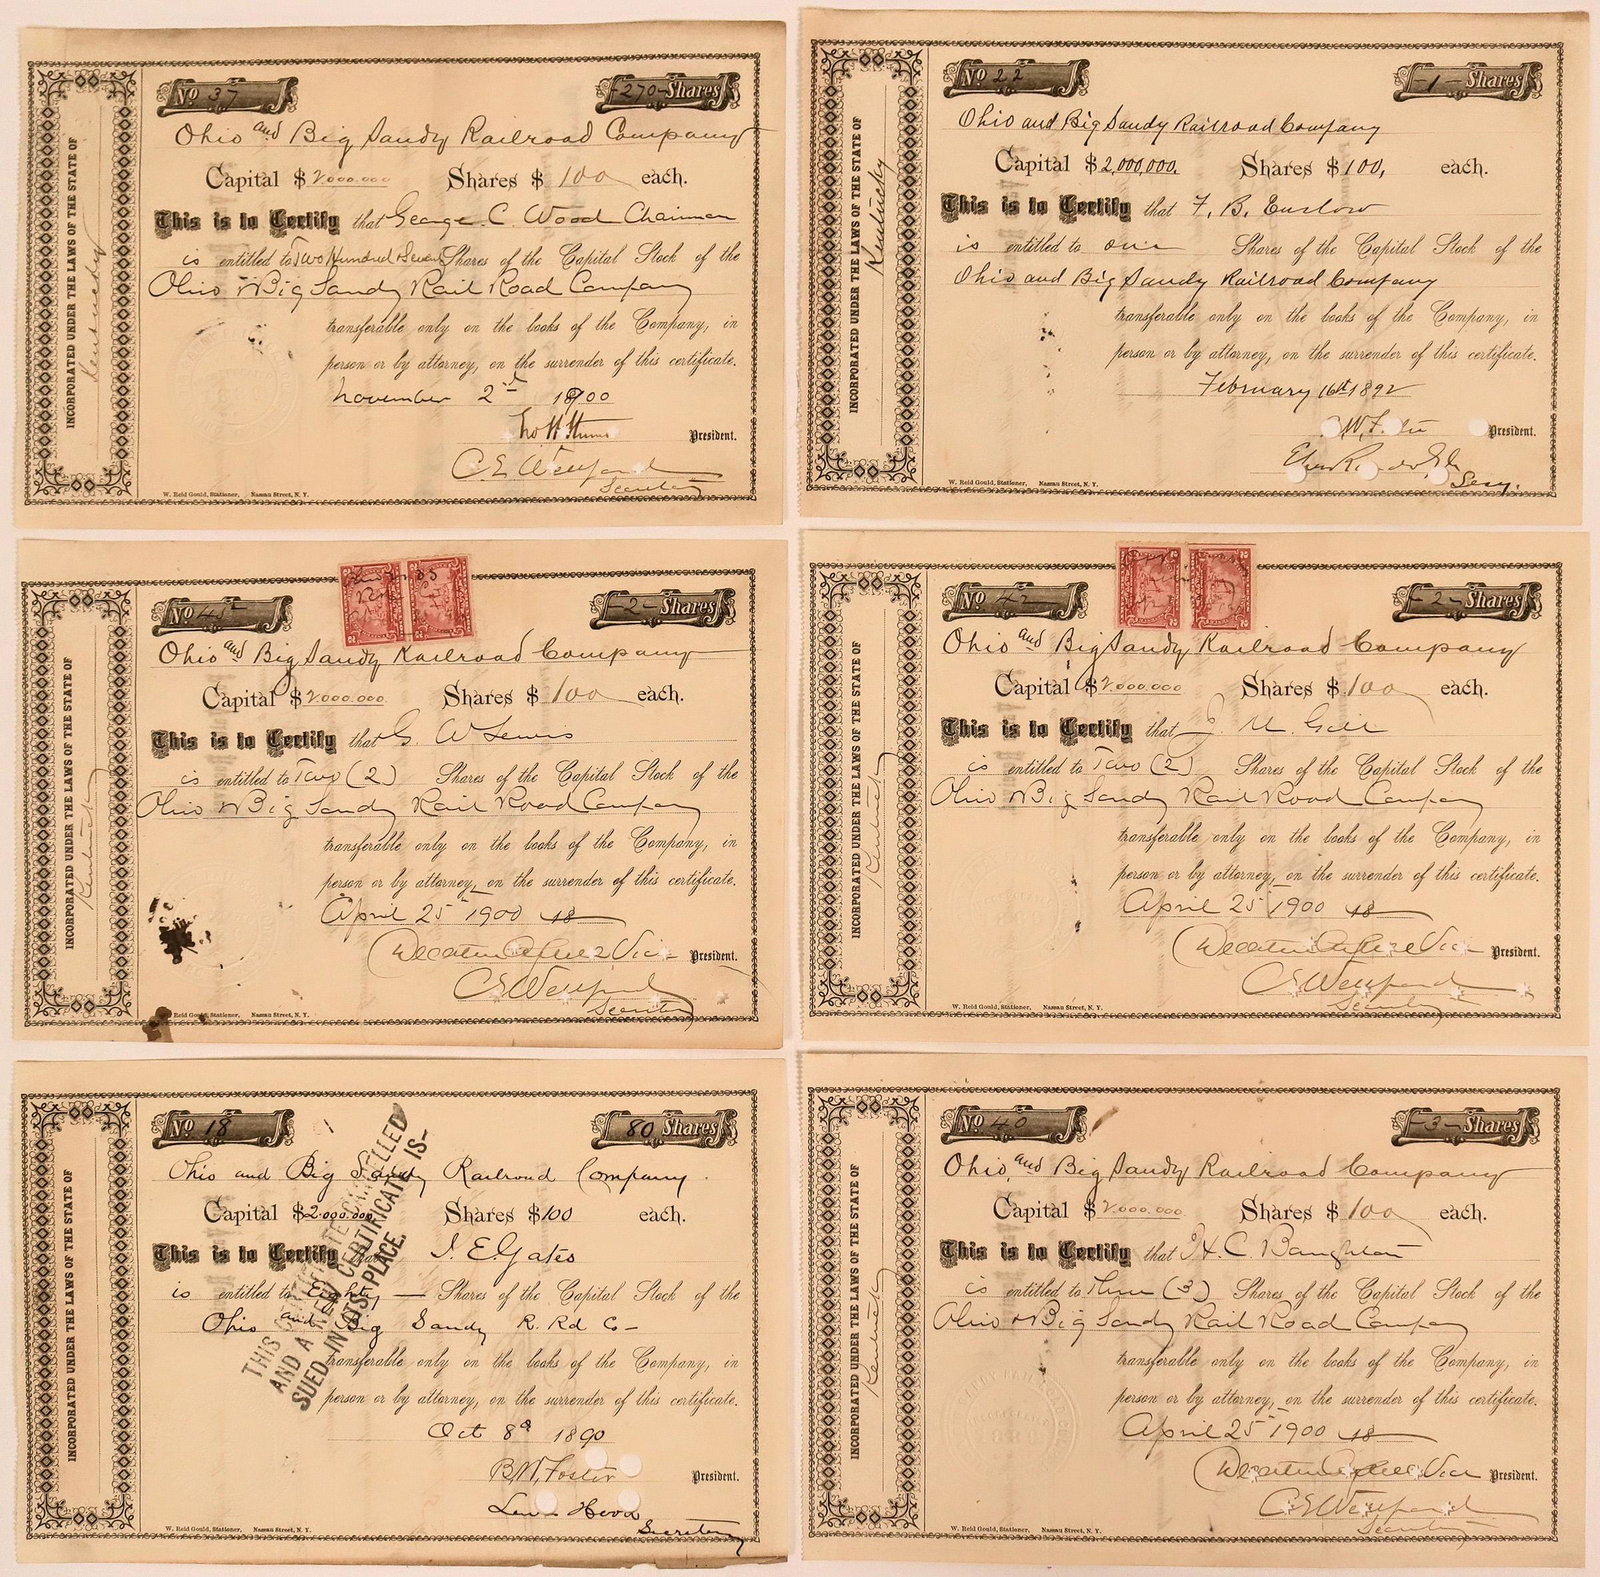 No 37
270 Shares
INCORPORATED UNDER THE LAWS OF THE STATE OF Kentucky
Ohio and Big Sandy Railroad Company
Capital $ 2.000.000 Shares $ 100 each.
This is to Certify that George C. Wood Chairman
is entitled to Two Hundred Seventy Shares of the Capital Stock of the
Ohio & Big Sandy Rail Road Company
transferable only on the books of the Company, in
person or by attorney, on the surrender of this certificate.
November 2nd 1900
President.
C. E. Wellford
Secretary
W. Reid Gould, Stationer, Nassau Street, N. Y.
No 22
1 Shares
INCORPORATED UNDER THE LAWS OF THE STATE OF Kentucky
Ohio and Big Sandy Railroad Company
Capital $ 2,000,000. Shares $ 100, each.
This is to Certify that F. B. Enslow
is entitled to one Shares of the Capital Stock of the
Ohio and Big Sandy Railroad Company
transferable only on the books of the Company, in
person or by attorney, on the surrender of this certificate.
February 16th 1892
President.
Secy.
W. Reid Gould, Stationer, Nassau Street, N. Y.
No 45
2 Shares
INCORPORATED UNDER THE LAWS OF THE STATE OF Kentucky
Ohio and Big Sandy Railroad Company
Capital $ 2.000.000 Shares $ 100 each.
This is to Certify that G. W Lewis
is entitled to Two (2) Shares of the Capital Stock of the
Ohio & Big Sandy Rail Road Company
transferable only on the books of the Company, in
person or by attorney, on the surrender of this certificate.
April 25th 1900 18
Decatur Axtell Vice President.
C E Wellford
Secretary
Reid Gould, Stationer, Nassau Street, N. Y.
No 42
2 Shares
INCORPORATED UNDER THE LAWS OF THE STATE OF Kentucky
Ohio and Big Sandy Railroad Company
Capital $ 2.000.000 Shares $ 100 each.
This is to Certify that J. M. Gill
is entitled to Two (2) Shares of the Capital Stock of the
Ohio & Big Sandy Rail Road Company
transferable only on the books of the Company, in
person or by attorney, on the surrender of this certificate.
April 25th 1900 18
Decatur Axtell Vice President.
C E Wellford
Secretary
W. Reid Gould, Stationer, Nassau Street, N. Y.
No 18
80 Shares
INCORPORATED UNDER THE LAWS OF THE STATE OF
Ohio and Big Sandy Railroad Company
Capital $ 2.000.000 Shares $ 100 each.
This is to Certify I. E. Gates
is entitled to Eighty Shares of the Capital Stock of the
Ohio and Big Sandy R. Rd Co
transferable only on the books of the Company, in
person or by attorney, on the surrender of this certificate.
Oct 8th 1890
B. W. Foster President.
Secretary
W. Reid Gould, Stationer, Nassau Street, N. Y.
THIS CERTIFICATE CANCELLED
AND A NEW CERTIFICATE IS-
SUED IN ITS PLACE.
No 40
3 Shares
INCORPORATED UNDER THE LAWS OF THE STATE OF Kentucky
Ohio and Big Sandy Railroad Company
Capital $ 2.000.000 Shares $ 100 each.
This is to Certify that H. C. Baughton
is entitled to Three (3) Shares of the Capital Stock of the
Ohio & Big Sandy Rail Road Company
transferable only on the books of the Company, in
person or by attorney, on the surrender of this certificate.
April 25th 1900 18
Decatur Axtell Vice President.
C E Wellford
Secretary
W. Reid Gould, Stationer, Nassau Street, N. Y.